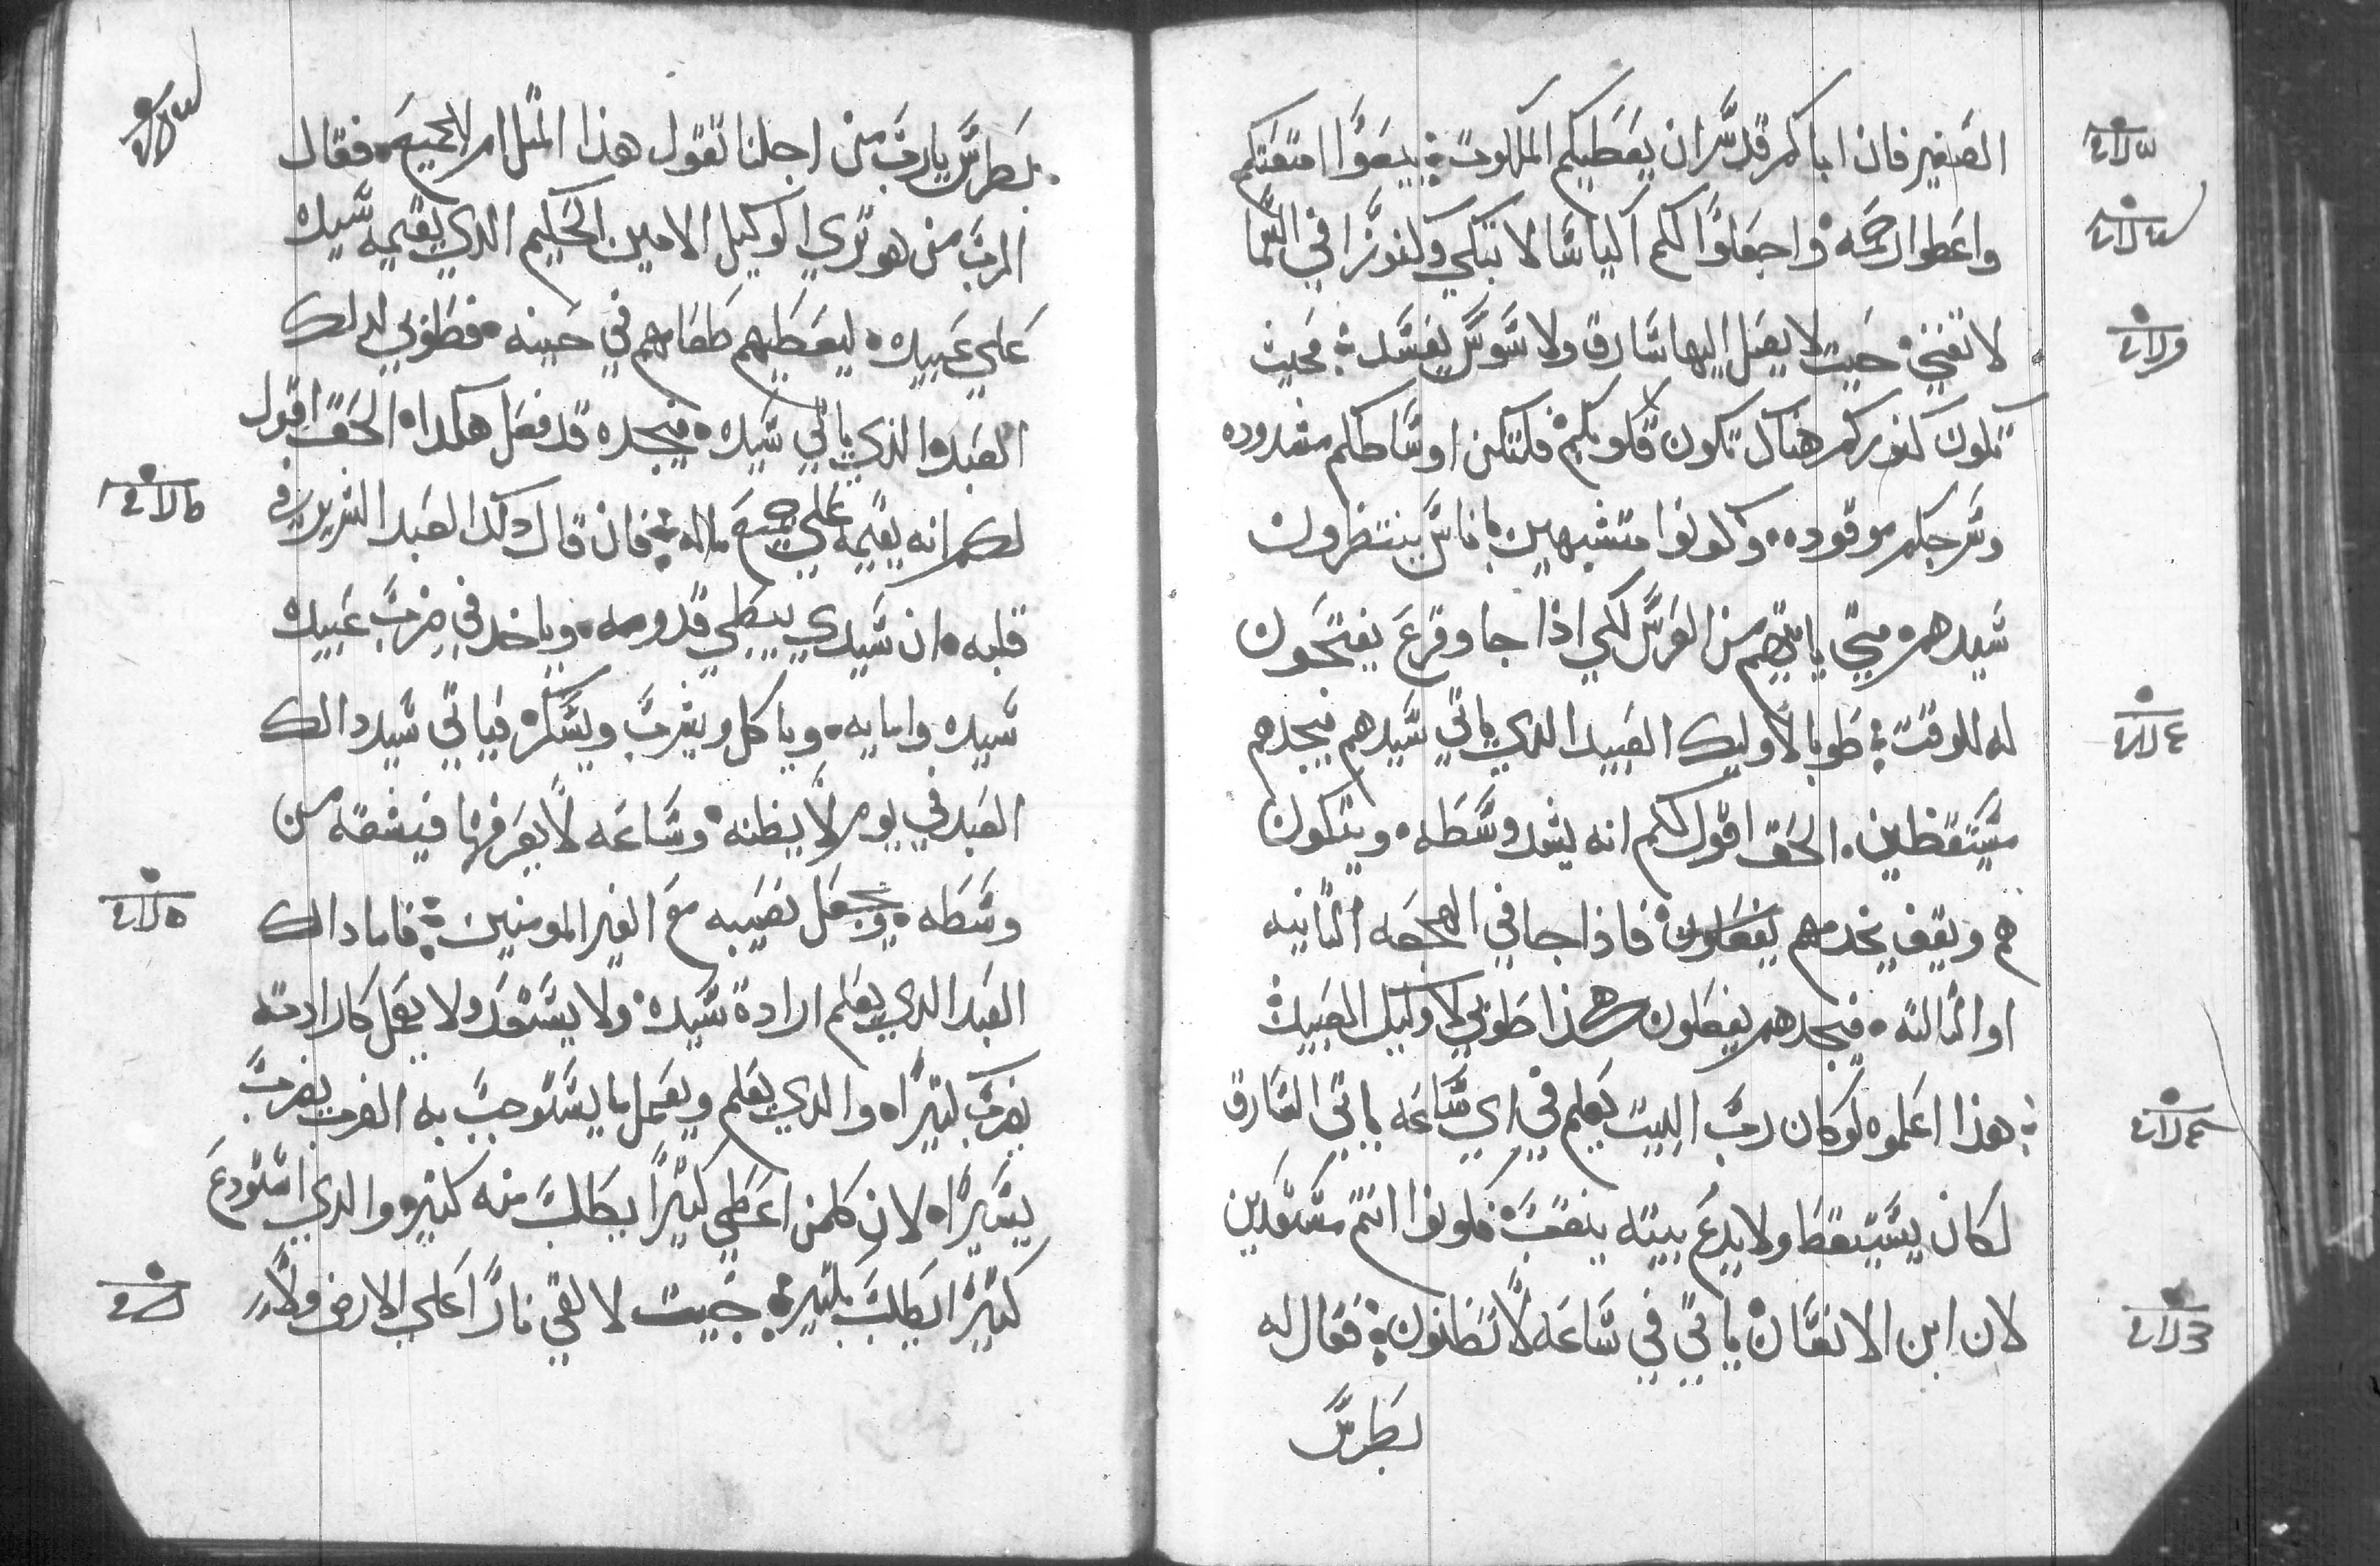 الصغير فان اباكم قد سر ان يعطيكم الملكوت بيعوا امتعتكم
واعطوا رحمه واجعلوا لكم اكياسا لا تبلي وكنوزا في السما
لا تفني حيت لا يصل اليها سارق ولا سوس يفسد فحيث
تكون كنوزكم هناك تكون قلوبكم فلتكن اوساطكم مشدوده
وسرجكم موقوده وكونوا متشبهين باناس ينتظرون
سيدهم متي ياتيهم من العرس لكي اذا جا وقرع يفتحون
له للوقت طوبا لاوليك العبيد الدي ياتي سيدهم فيجدهم
مستيقظين الحق اقول لكم انه يشد وسطه ويتكون
هم ويقف يخدمهم فاذا جا في الهجعه التانيه
او التالته فيجدهم يفعلون هكذا طوبي لاوليك العبيد
هذا اعلموه لو كان رب البيت يعلم في اي ساعه ياتي السارق
لكان يستيقظ ولا يدع بيته ينقب فكونوا انتم مستعدين
لان ابن الانسان ياتي في ساعه لا تظنون فقال له
بطرس
بطرس يارب من اجلنا تقول هذا المتل ام للجميع فقال
الرب من هو تري الوكيل الامين الحكيم الدي يقيمه سيده
علي عبيده ليعطيهم طعامهم في حينه فطوبي لدلك
العبد الذي ياتي سيده فيجده قد فعل هكدا الحق اقول
لكم انه يقيمه علي جميع ماله فان قال دلك العبد الشرير في
قلبه ان سيدي يبطي قدومه وياخد في ضرب عبيد
سيده وامايه وياكل ويشرب ويسكر فياتي سيد دالك
العبد في يوم لا يظنه وساعه لا يعرفها فيشقه من
وسطه ويجعل نصيبه مع الغير المومنين فاما دالك
العبد الدي يعلم ارادة سيده ولا يستعد ولا يعمل كارادته
يضرب كتيرا والدي يعلم ويعمل ما يستوجب به الضرب يضرب
يسيرا لان كلمن اعطي كتيرا يطلب منه كتير والدي استودع
كتيرا يطلب بكتير جيت لالقي نارا علي الارض